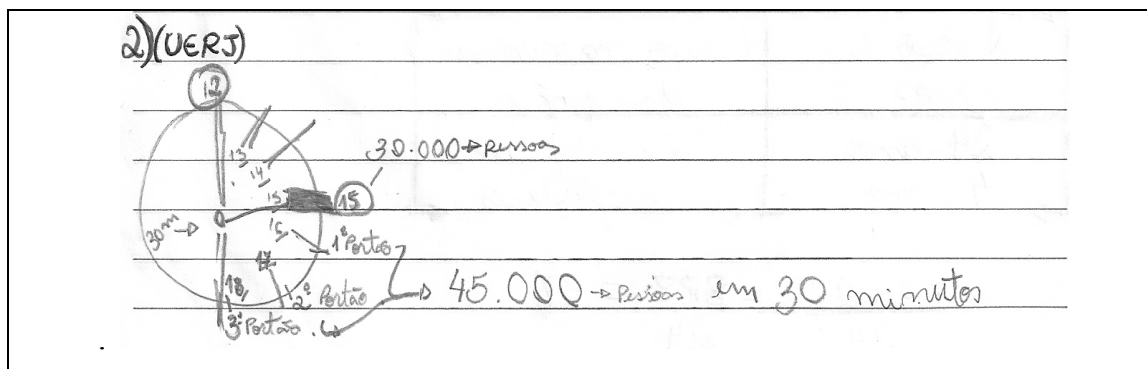 2)(UERJ)
12
13
14
30.000 → Pessoas
15
15
30m →
16
1º Portão
17
18
2º Portão
3º Portão
→ 45.000 → Pessoas em 30 minutos